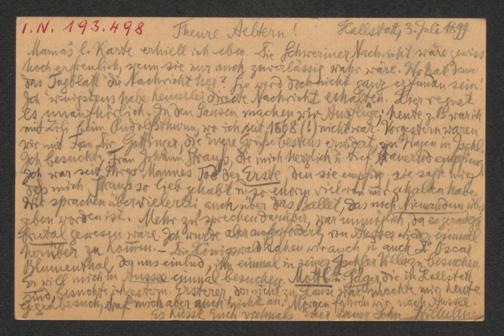 I.N. 193.498
Theure Aeltern! Hallstatt, 3. Juli 1899
Mama's l. Karte erhielt ich eben. Die Schweriner Nachricht wäre gewiss
hocherfreulich, wenn sie nur auch zuverlässig wahr wäre. Wo hat denn
das Tagblatt die Nachricht her? Sie wird doch nicht ganz erfunden sein!
Ich wenigstens habe keinerlei directe Nachricht erhalten. Hier regnet
es unaufhörlich. In den Pausen machen wir Ausflüge; heute z.B. war ich
mit Lili beim Rudolfsthurm, wo ich seit 1868 (!) nicht war. Vorgestern waren
wir mit
Ich besuchte Frau Johann Strauss, die mich herzlich u. tief trauernd empfing.
Ich war seit ihres Mannes Tod der Erste, den sie empfing. Sie sagte mir,
dass mich Strauss so lieb gehabt u. so enorm viel von mir gehalten habe.
Wir sprachen über vielerlei, auch über das Ballet, das noch Niemandem über-
geben worden ist. Mehr zu sprechen darüber, war unmöglich, da es geradezu
brutal gewesen wäre. Ich wurde aber aufgefordert, von Aussee einmal
herüber zu kommen. Die Königswald sahen wir auch u. auch Oscar
Blumenthal, der uns einlud, ihn einmal in seiner Ischler Villa zu besuchen.
Er will mich in Aussee einmal besuchen. Mottl u. Felger, die in Hallstatt
sind, besuchte ich gestern.
Gegenbesuch, traf mich aber auch nicht an. Morgen fahren wir nach Aussee.
Es küsst Euch vielmals Euer treuer Sohn Wilhelm